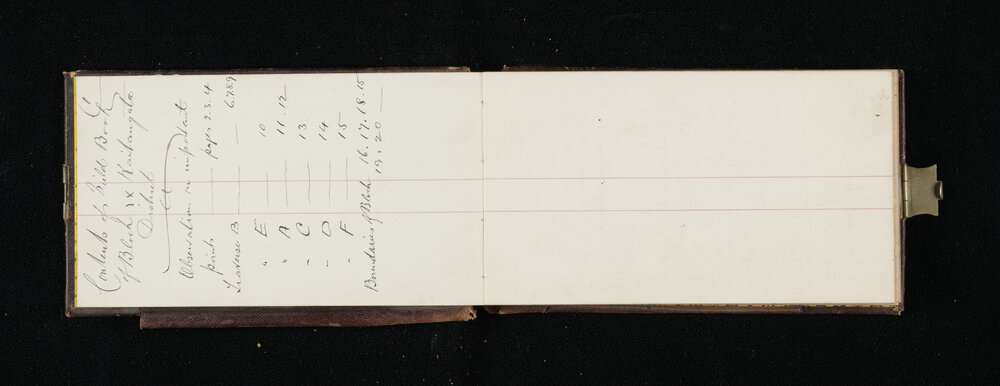 Contents of Field Book
of Block IX Kaitangata
District
Observation on important
points — pages 2.3.4
Traverse B — 6.7.8.9
" E — 10
" A — 11.12
" C — 13
" D — 14
" F — 15
Boundaries of Block 16.17.18.15
19.20 —